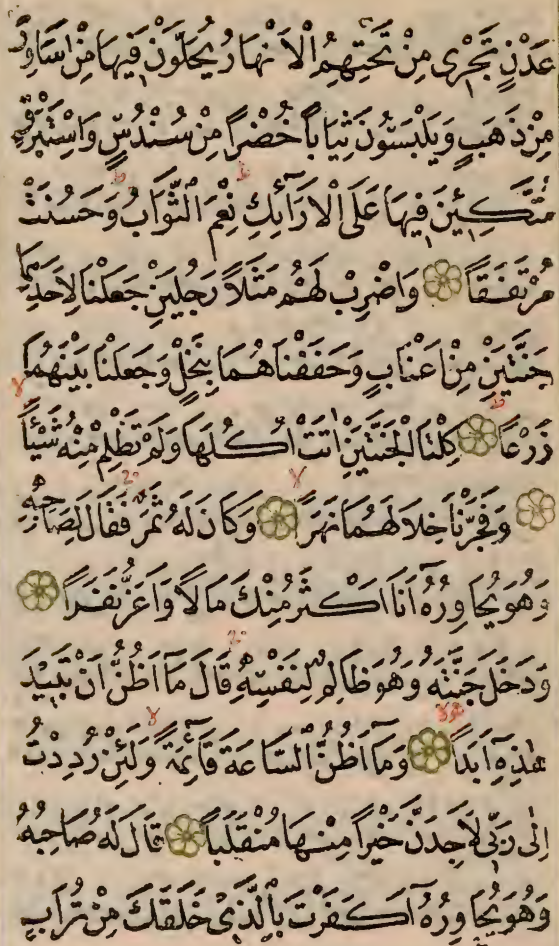 عَدْنٍ تَجْرِى مِنْ تَحْتِهِمُ الْاَنْهَارُ يُحَلَّوْنَ فِيهَا مِنْ اَسَاوِرَ
مِنْ ذَهَبٍ وَيَلْبَسُونَ ثِيَابًا خُضْرًا مِنْ سُنْدُسٍ وَاِسْتَبْرَقٍ
مُتَّكِـِٔينَ فِيهَا عَلَى الْاَرَآئِكِ نِعْمَ الثَّوَابُ وَحَسُنَتْ
مُرْتَفَقًا وَاضْرِبْ لَهُمْ مَثَلًا رَجُلَيْنِ جَعَلْنَا لِاَحَدِهِمَا
جَنَّتَيْنِ مِنْ اَعْنَابٍ وَحَفَفْنَاهُمَا بِنَخْلٍ وَجَعَلْنَا بَيْنَهُمَا
زَرْعًا كِلْتَا الْجَنَّتَيْنِ اٰتَتْ اُكُلَهَا وَلَمْ تَظْلِمْ مِنْهُ شَيْـًٔا
وَفَجَّرْنَا خِلَالَهُمَا نَهَرًا وَكَانَ لَهُ ثَمَرٌ فَقَالَ لِصَاحِبِهِ
وَهُوَ يُحَاوِرُهُٓ اَنَا اَكْثَرُ مِنْكَ مَالًا وَاَعَزُّ نَفَرًا
وَدَخَلَ جَنَّتَهُ وَهُوَ ظَالِمٌ لِنَفْسِهِ قَالَ مَٓا اَظُنُّ اَنْ تَبِيدَ
هٰذِهِٓ اَبَدًا وَمَٓا اَظُنُّ السَّاعَةَ قَٓائِمَةً وَلَئِنْ رُدِدْتُ
اِلٰى رَبِّى لَاَجِدَنَّ خَيْرًا مِنْهَا مُنْقَلَبًا قَالَ لَهُ صَاحِبُهُ
وَهُوَ يُحَاوِرُهُٓ اَكَفَرْتَ بِالَّذِى خَلَقَكَ مِنْ تُرَابٍ